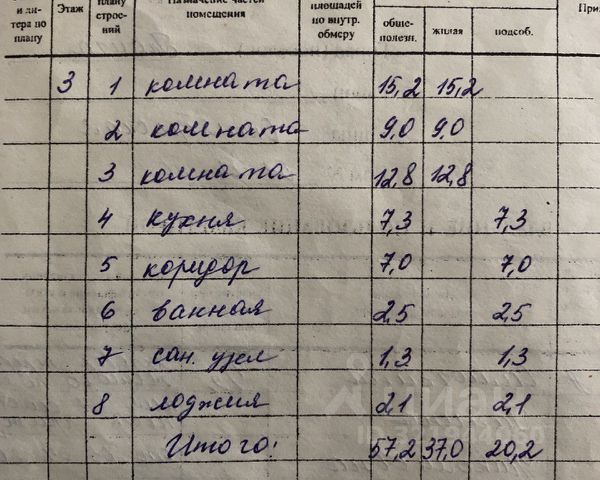 и ли-
тера по
плану
Этаж
плану
строе-
ний
Назначение частей
помещения
площадей
по внутр.
обмеру
обще-
полезн.
жилая
подсоб.
3 1 комната 15,2 15,2
2 комната 9,0 9,0
3 комната 12,8 12,8
4 кухня 7,3 7,3
5 коридор 7,0 7,0
6 ванная 2,5 2,5
7 сан. узел 1,3 1,3
8 лоджия 2,1 2,1
Итого: 57,2 37,0 20,2